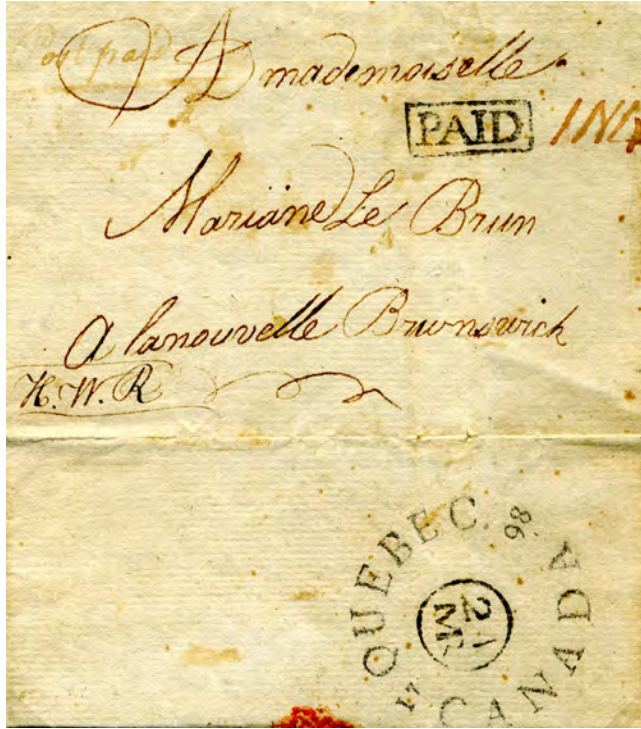 Post paid
A mademoiselle
PAID 1N4
Mariäne Le Brun
A lanouvelle Brunswick
H. W. R
QUEBEC. 98
21
MR
17 CANADA